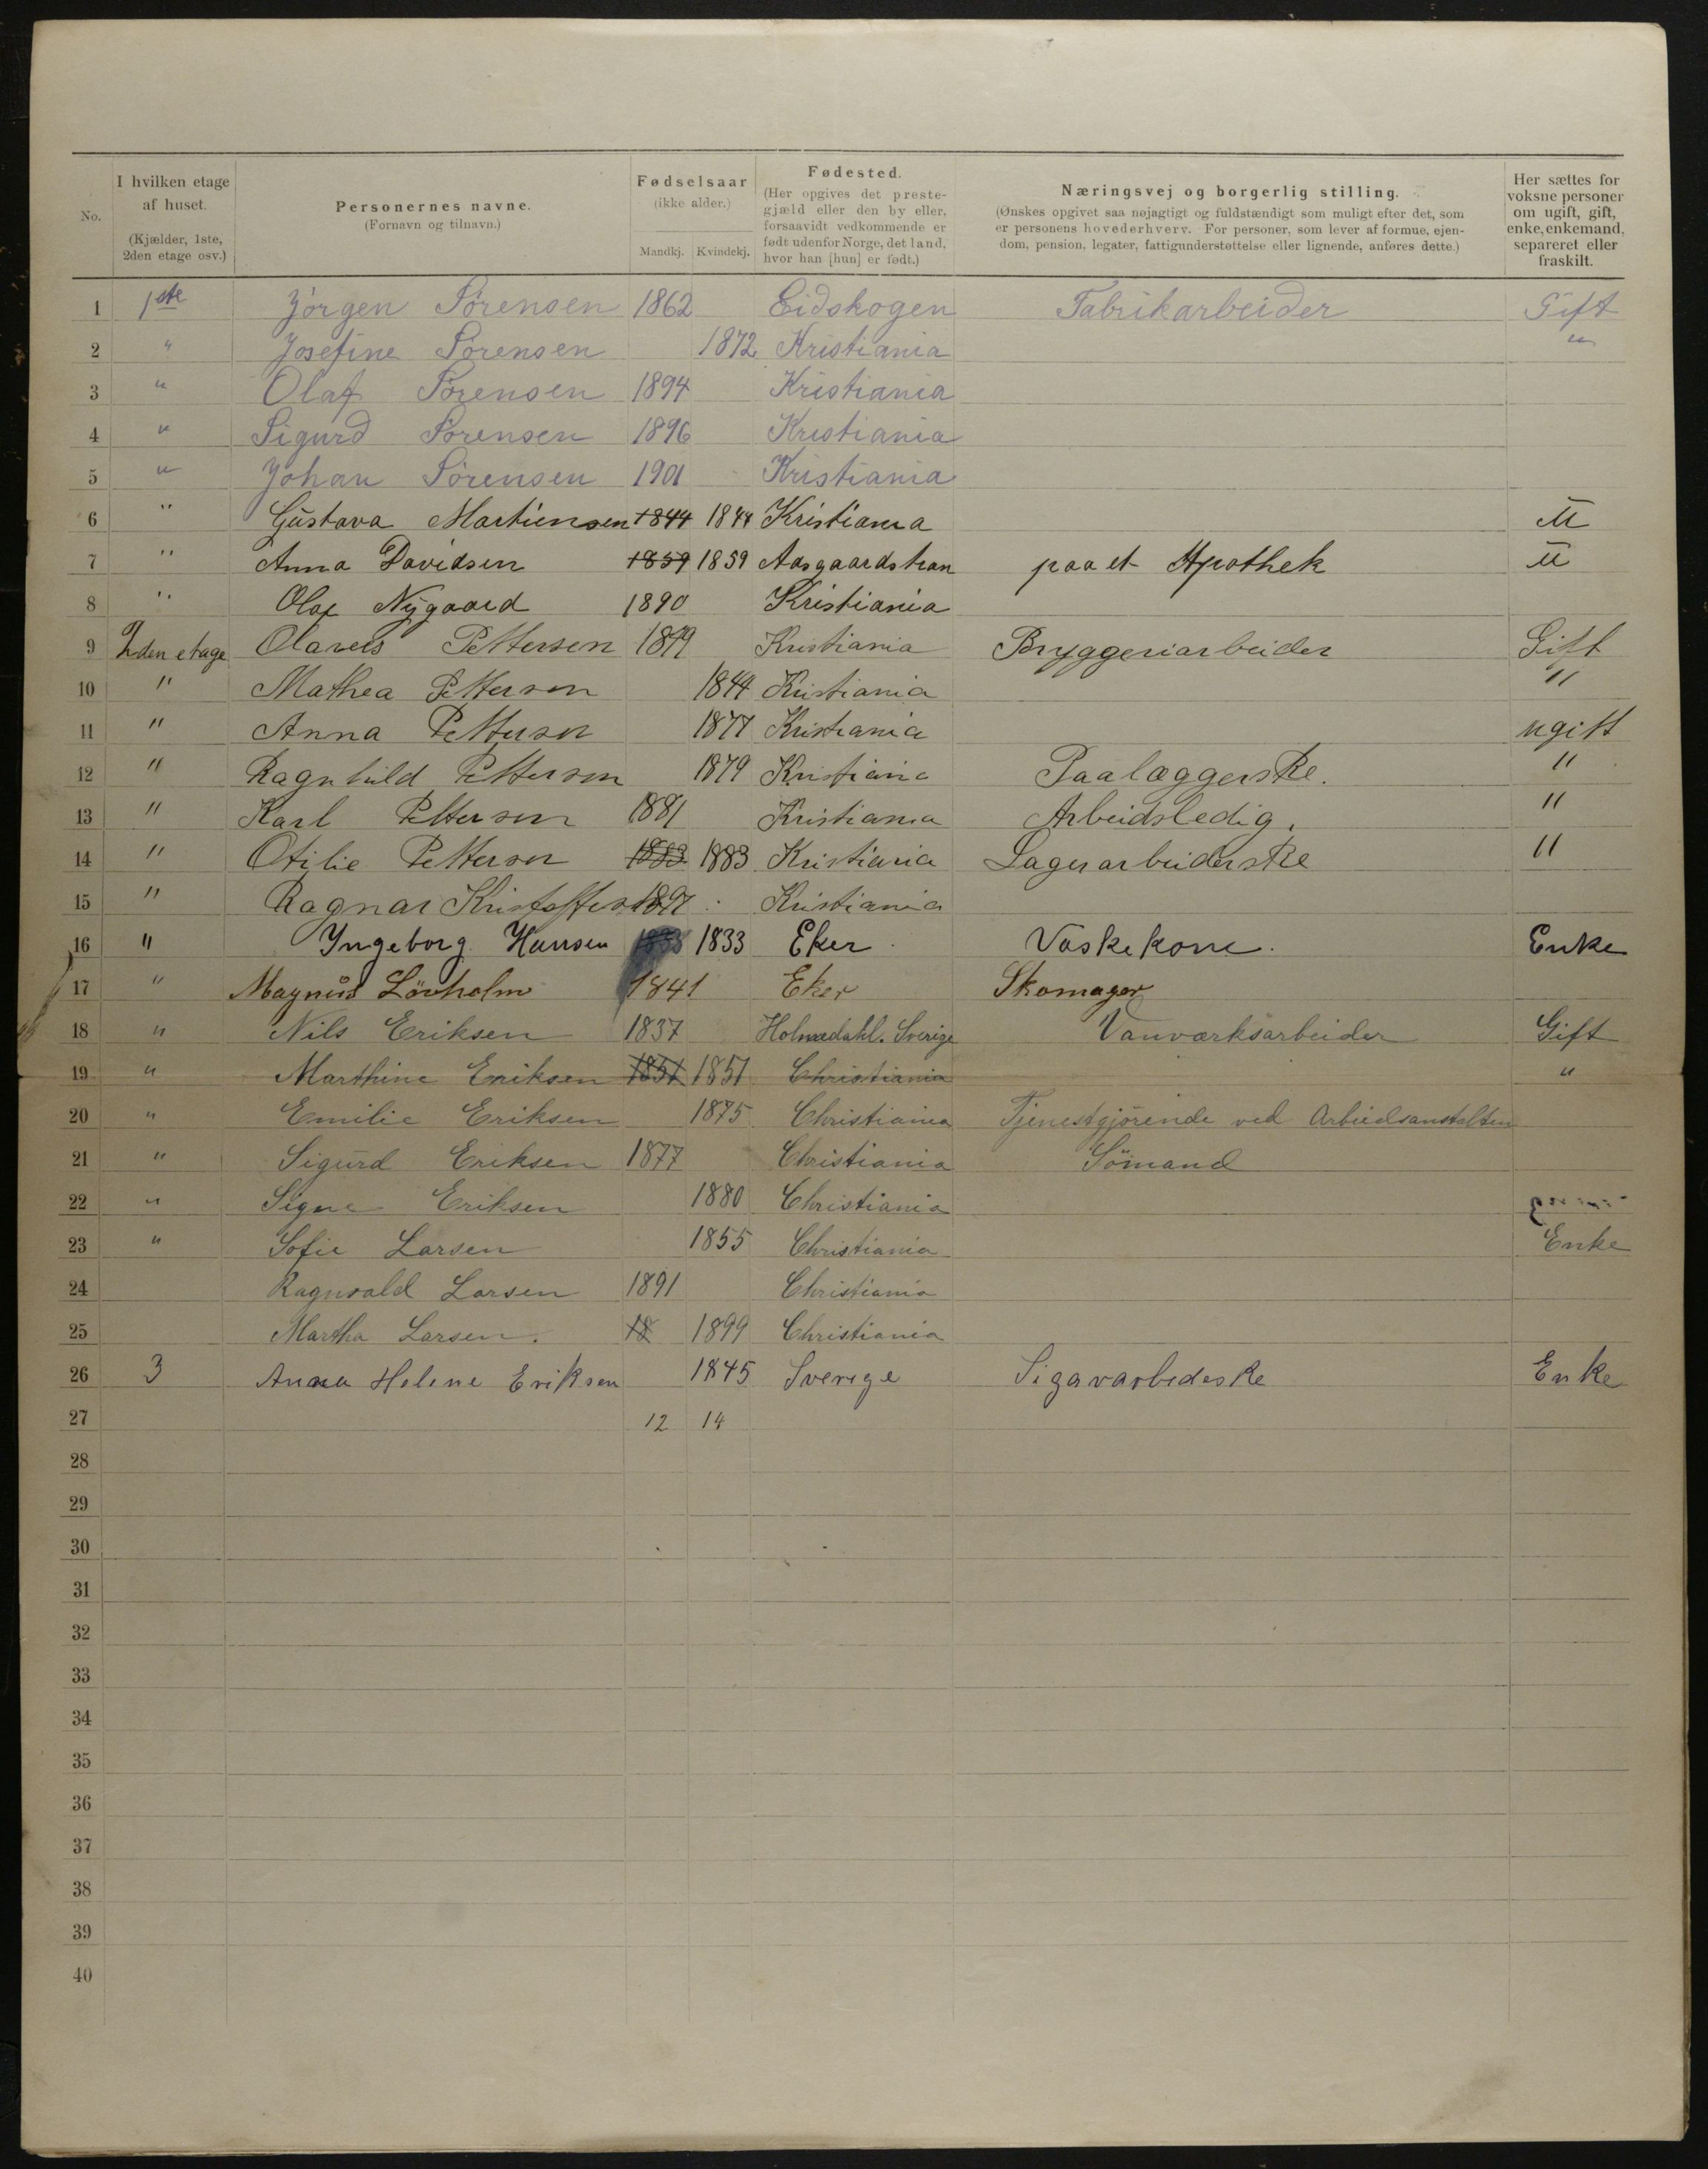 No. | I hvilken etage af huset. (Kjælder, 1ste, 2den etage osv.) | Personernes navne. (Fornavn og tilnavn.) | Fødselsaar (ikke alder.) Mandkj. Kvindekj. | Fødested. (Her opgives det prestegjæld eller den by eller, forsaavidt vedkommende er født udenfor Norge, det land, hvor han [hun] er født.) | Næringsvej og borgerlig stilling. (Ønskes opgivet saa nøjagtigt og fuldstændigt som muligt efter det, som er personens hovederhverv. For personer, som lever af formue, ejendom, pension, legater, fattigunderstøttelse eller lignende, anføres dette.) | Her sættes for voksne personer om ugift, gift, enke, enkemand, separeret eller fraskilt.
1 1ste Jörgen Sörensen 1862 Eidskogen Fabrikarbeider Gift
2 " Josefine Sörensen 1872 Kristiania "
3 " Olaf Sörensen 1894 Kristiania
4 " Sigurd Sörensen 1896 Kristiania
5 " Johan Sörensen 1901 Kristiania
6 " Gustava Martiensen 1844 1844 Kristiania U
7 " Anna Davidsen 1859 1859 Aasgaardstran paa et Apothek U
8 " Olaf Nygaard 1890 Kristiania
9 2den etage Olaves Pettersen Kristiania Bryggeriarbeider Gift
10 " Mathea Petterson 1844 Kristiania "
11 " Anna Petterson 1877 Kristiania ugift
12 " Ragnhild Petterson 1879 Kristiania Paalæggerske. "
13 " Karl Petterson 1881 Kristiania Arbeidsledig. "
14 " Otilie Petterson 1883 1883 Kristiania Lagerarbeiderske "
15 " Ragnar 1897 Kristiania
16 " Yngeborg Hansen 1833 1833 Eker Vaskekone. Enke
17 " Magnus Lövholm 1841 Eker Skomager
18 " Nils Eriksen 1837 Holmedahl. Sverige Vanværksarbeider Gift
19 " Marthine Eriksen 1851 1851 Christiania "
20 " Emilie Eriksen 1875 Christiania Tjenestgjörende ved Arbeidsanstalten
21 " Sigurd Eriksen 1877 Christiania Sömand
22 " Signe Eriksen 1880 Christiania
23 " Sofie Larsen 1855 Christiania Enke
24 Ragnvald Larsen 1891 Christiania
25 Martha Larsen. 18 1899 Christiania
26 3 Anna Helene Eriksen 1845 Sverige Sigararbedeske Enke
27 12 14
28
29
30
31
32
33
34
35
36
37
38
39
40